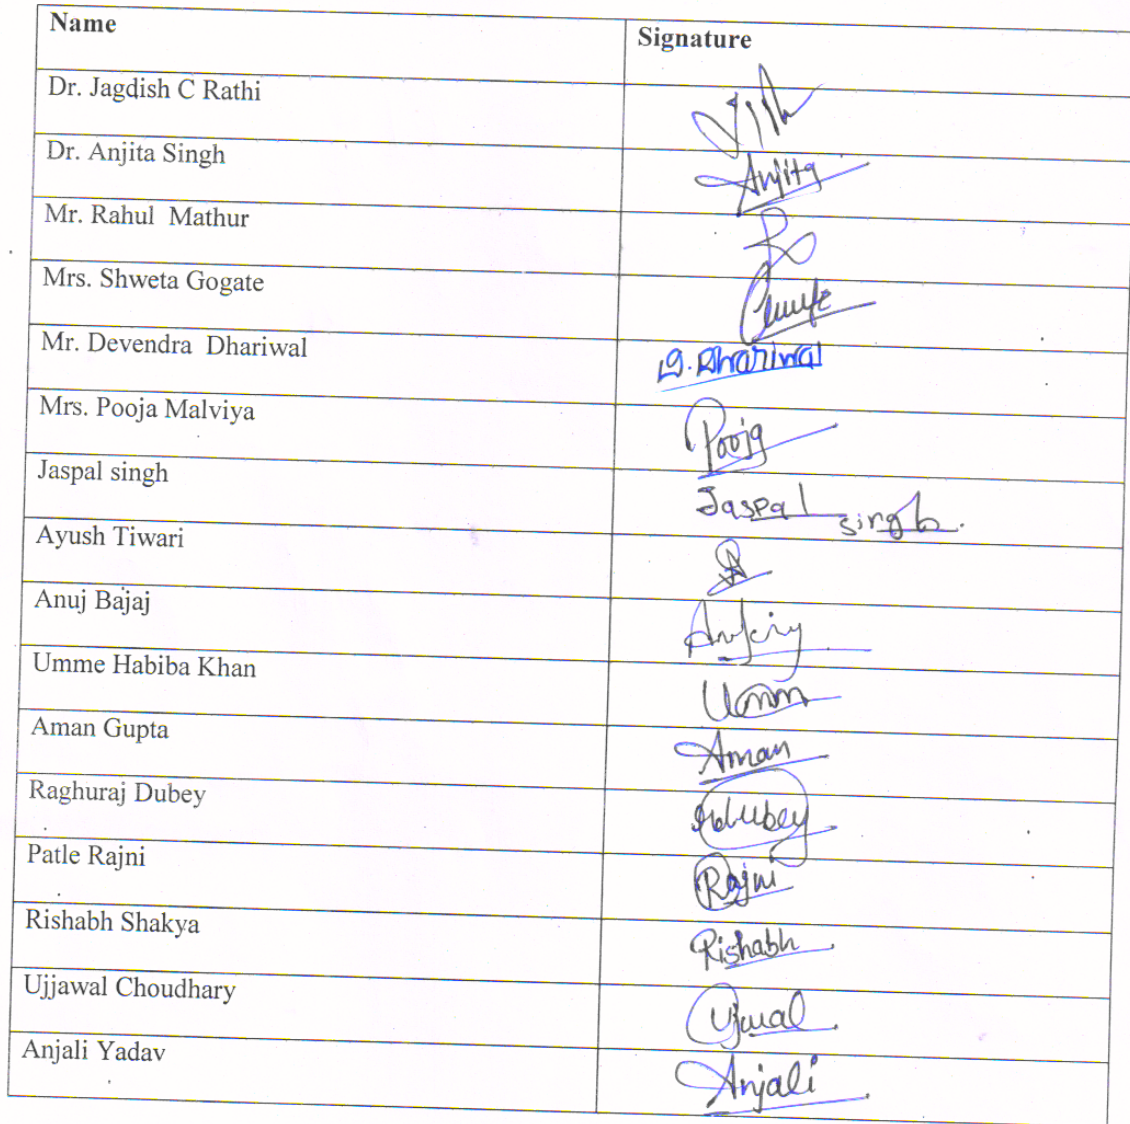 Name Signature
Dr. Jagdish C Rathi
Dr. Anjita Singh Anjita
Mr. Rahul Mathur
Mrs. Shweta Gogate
Mr. Devendra Dhariwal D. Dhariwal
Mrs. Pooja Malviya Pooja
Jaspal singh Jaspal singh.
Ayush Tiwari
Anuj Bajaj
Umme Habiba Khan Umm
Aman Gupta Aman
Raghuraj Dubey Rdubey
Patle Rajni Rajni
Rishabh Shakya Rishabh
Ujjawal Choudhary Ujwal
Anjali Yadav Anjali